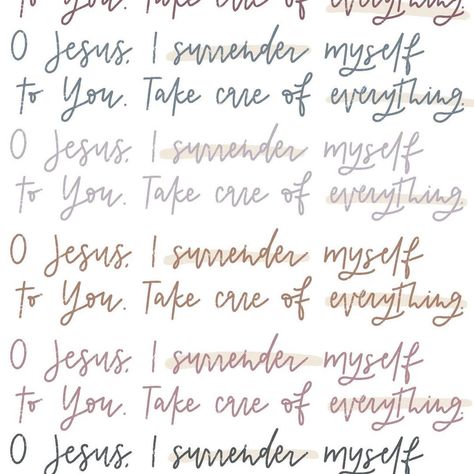 to You. Take care of everything.
O Jesus, I surrender myself
to You. Take care of everything.
O Jesus, I surrender myself
to You. Take care of everything.
O Jesus, I surrender myself
to You. Take care of everything.
O Jesus, I surrender myself
to You. Take care of everything.
O Jesus, I surrender myself